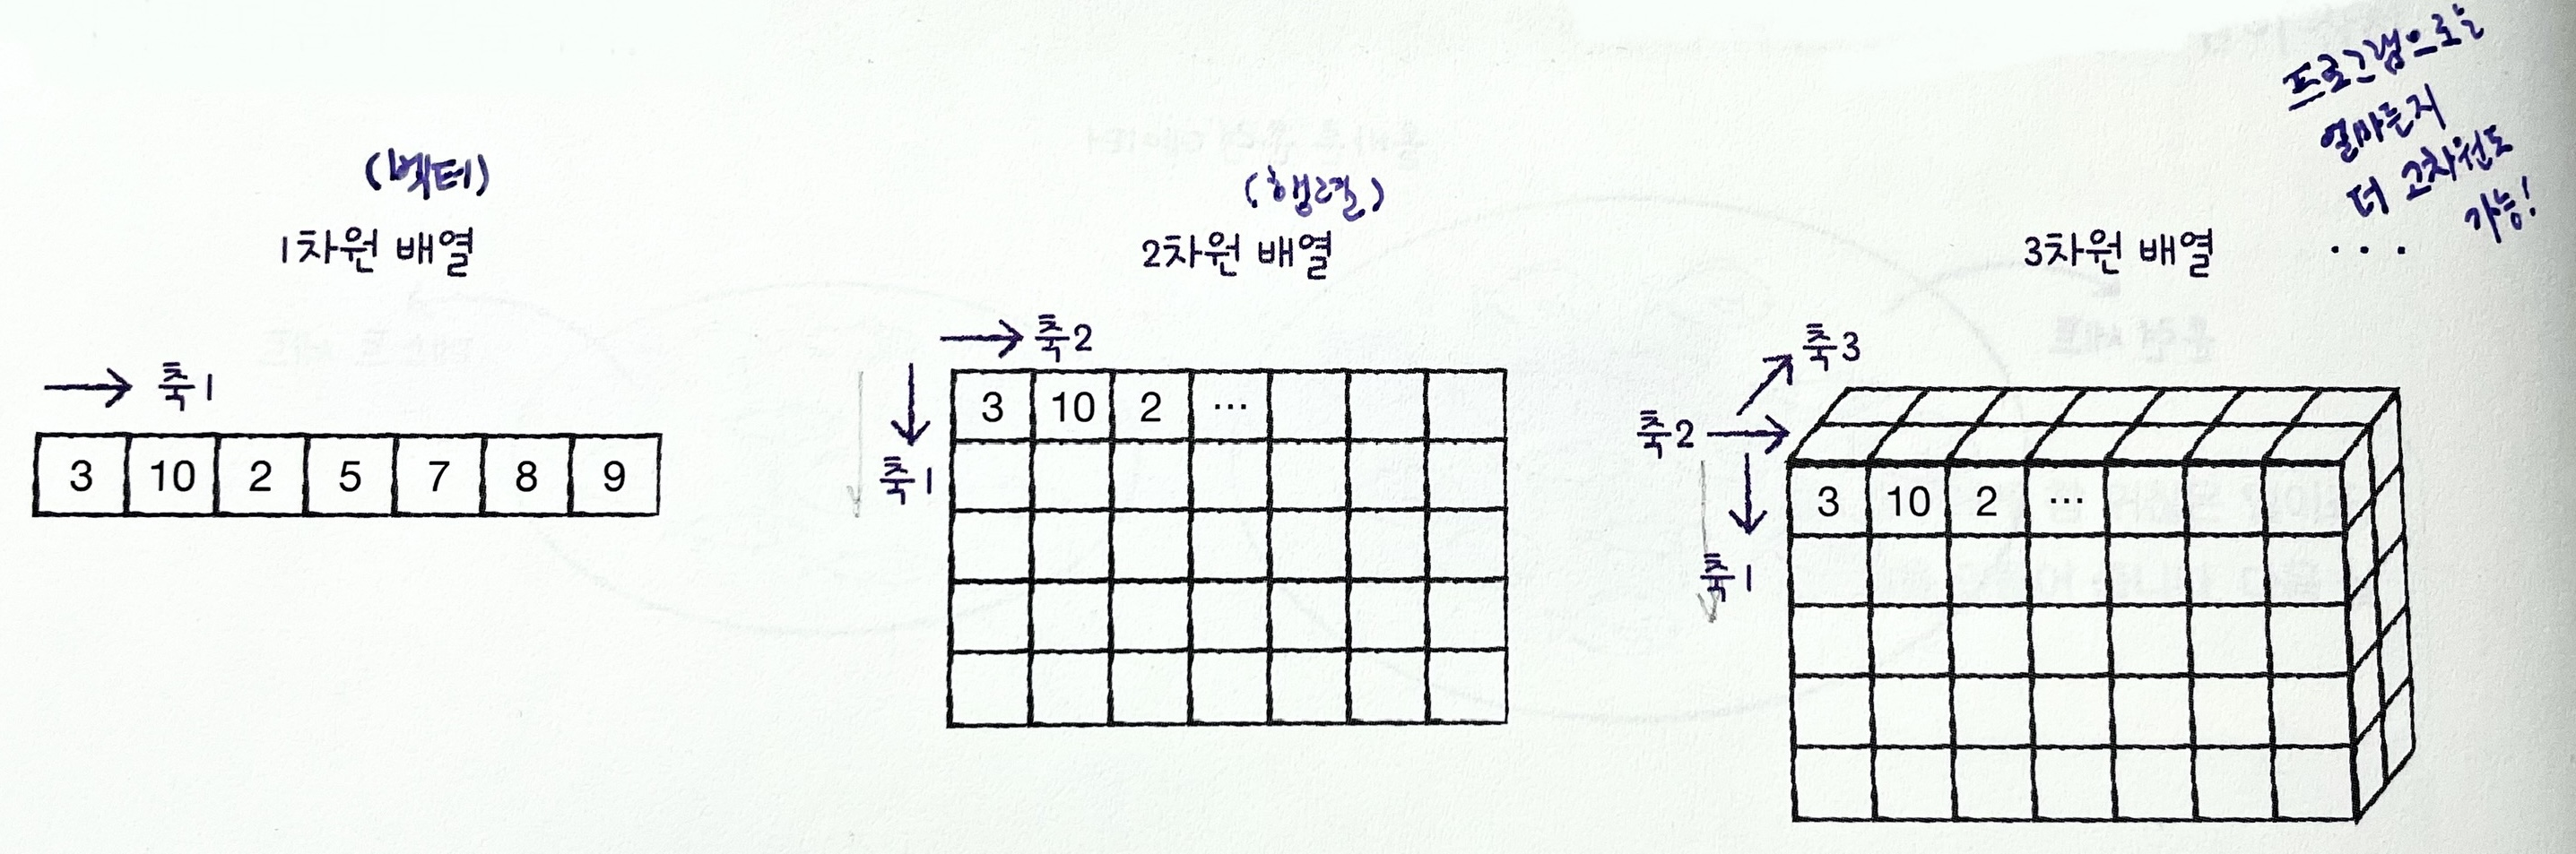 (벡터)
1차원 배열
→ 축1
3 10 2 5 7 8 9
(행렬)
2차원 배열
→ 축2
↓
축1
3 10 2 ...
프로그램으로는
얼마든지
더 고차원도
가능!
3차원 배열 ...
축3
축2 →
축1
3 10 2 ...